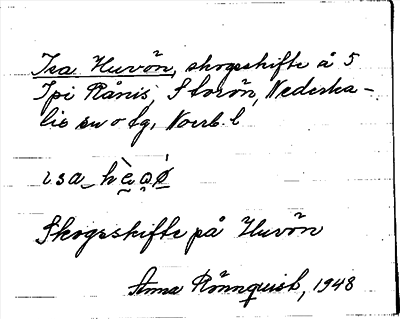 Isa Huvön, skogsskifte å 5
Ipi Rånis, Storön, Nederka-
lix sn o tg, Norrb. l
isa_h
Skogsskifte på Huvön
Anna Rönnquist, 1948